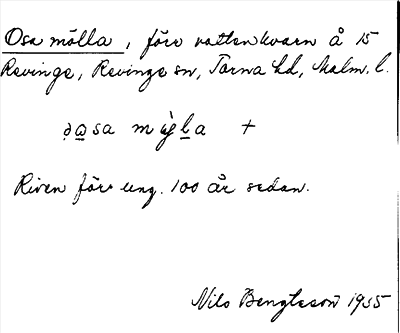 Osa mölla, förv vattenkvarn å 15
Revinge, Revinge sn, Torna hd, Malm. l.
+
Riven för ung. 100 år sedan.
Nils Bengtsson 1935